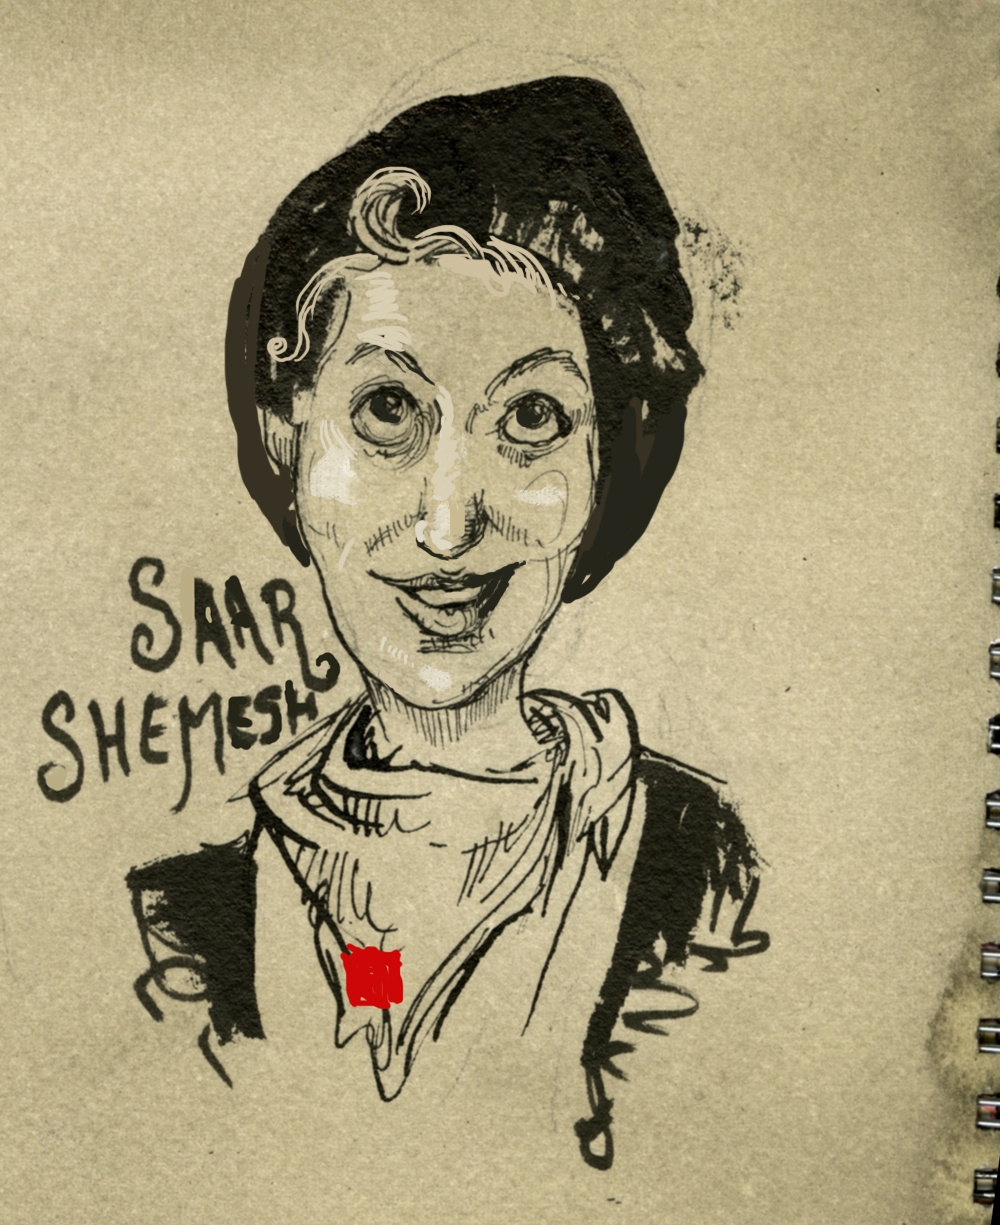 SAAR
SHEMESH